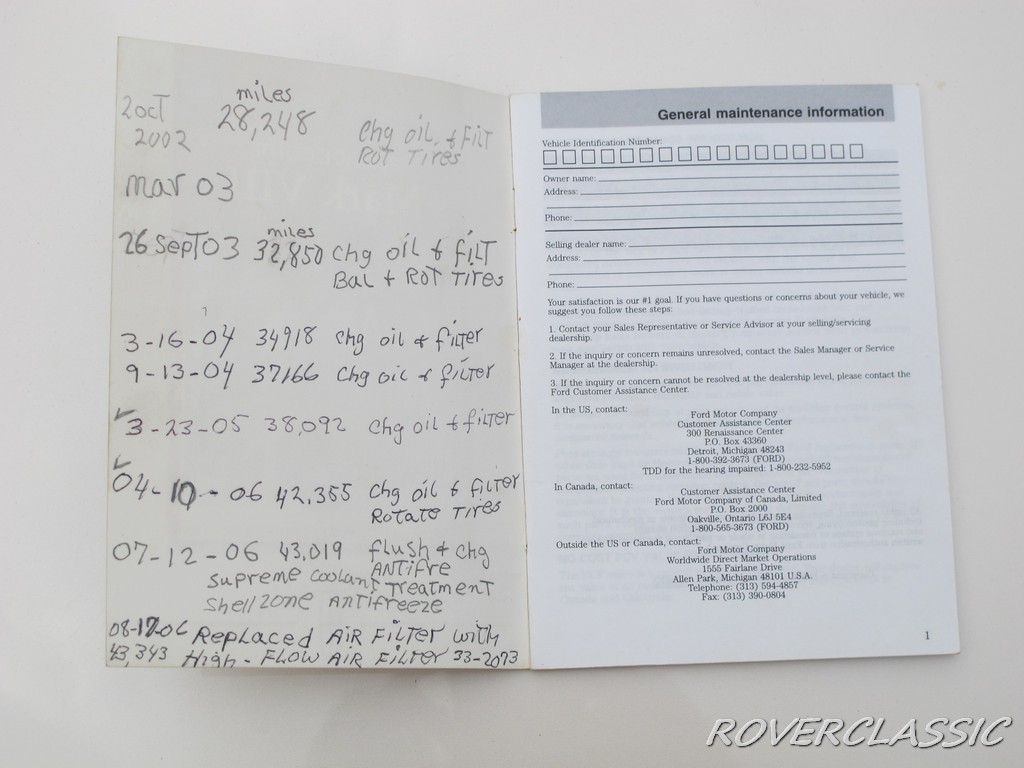 2 oct
2002
miles
28,248
Chg oil & Filt
Rot Tires
mar 03
26 Sept 03 miles 32,850 Chg oil & filt
Bal + Rot Tires
3-16-04 34918 Chg oil & filter
9-13-04 37166 Chg oil & filter
3-23-05 38,092 Chg oil & filter
04-10-06 42,355 Chg oil & filter
Rotate Tires
07-12-06 43,019 flush & chg
Antifre
Supreme Coolant Treatment
Shellzone Antifreeze
08-17-06 Replaced Air Filter with
43,343 High-Flow Air Filter 33-2073
General maintenance information
Vehicle Identification Number:
Owner name:
Address:
Phone:
Selling dealer name:
Address:
Phone:
Your satisfaction is our #1 goal. If you have questions or concerns about your vehicle, we
suggest you follow these steps:
1. Contact your Sales Representative or Service Advisor at your selling/servicing
dealership.
2. If the inquiry or concern remains unresolved, contact the Sales Manager or Service
Manager at the dealership.
3. If the inquiry or concern cannot be resolved at the dealership level, please contact the
Ford Customer Assistance Center.
In the US, contact:
Ford Motor Company
Customer Assistance Center
300 Renaissance Center
P.O. Box 43360
Detroit, Michigan 48243
1-800-392-3673 (FORD)
TDD for the hearing impaired: 1-800-232-5952
In Canada, contact:
Customer Assistance Center
Ford Motor Company of Canada, Limited
P.O. Box 2000
Oakville, Ontario L6J 5E4
1-800-565-3673 (FORD)
Outside the US or Canada, contact:
Ford Motor Company
Worldwide Direct Market Operations
1555 Fairlane Drive
Allen Park, Michigan 48101 U.S.A.
Telephone: (313) 594-4857
Fax: (313) 390-0804
1
ROVERCLASSIC